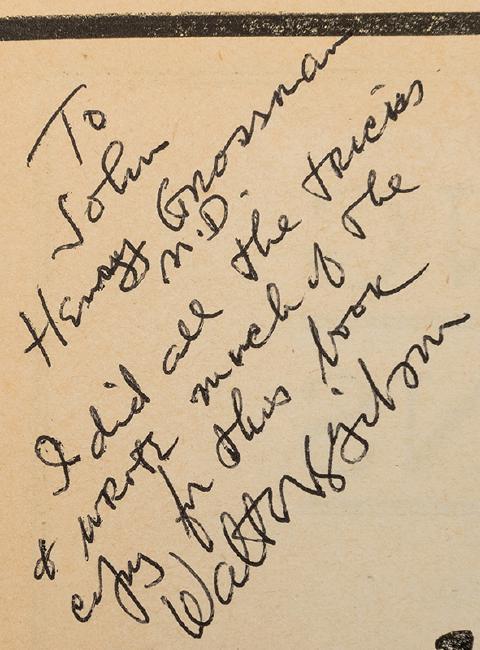 To
John
Henry Grossman
M.D.
I did all the tricks
& wrote much of the
copy for this book
Walter B Gibson